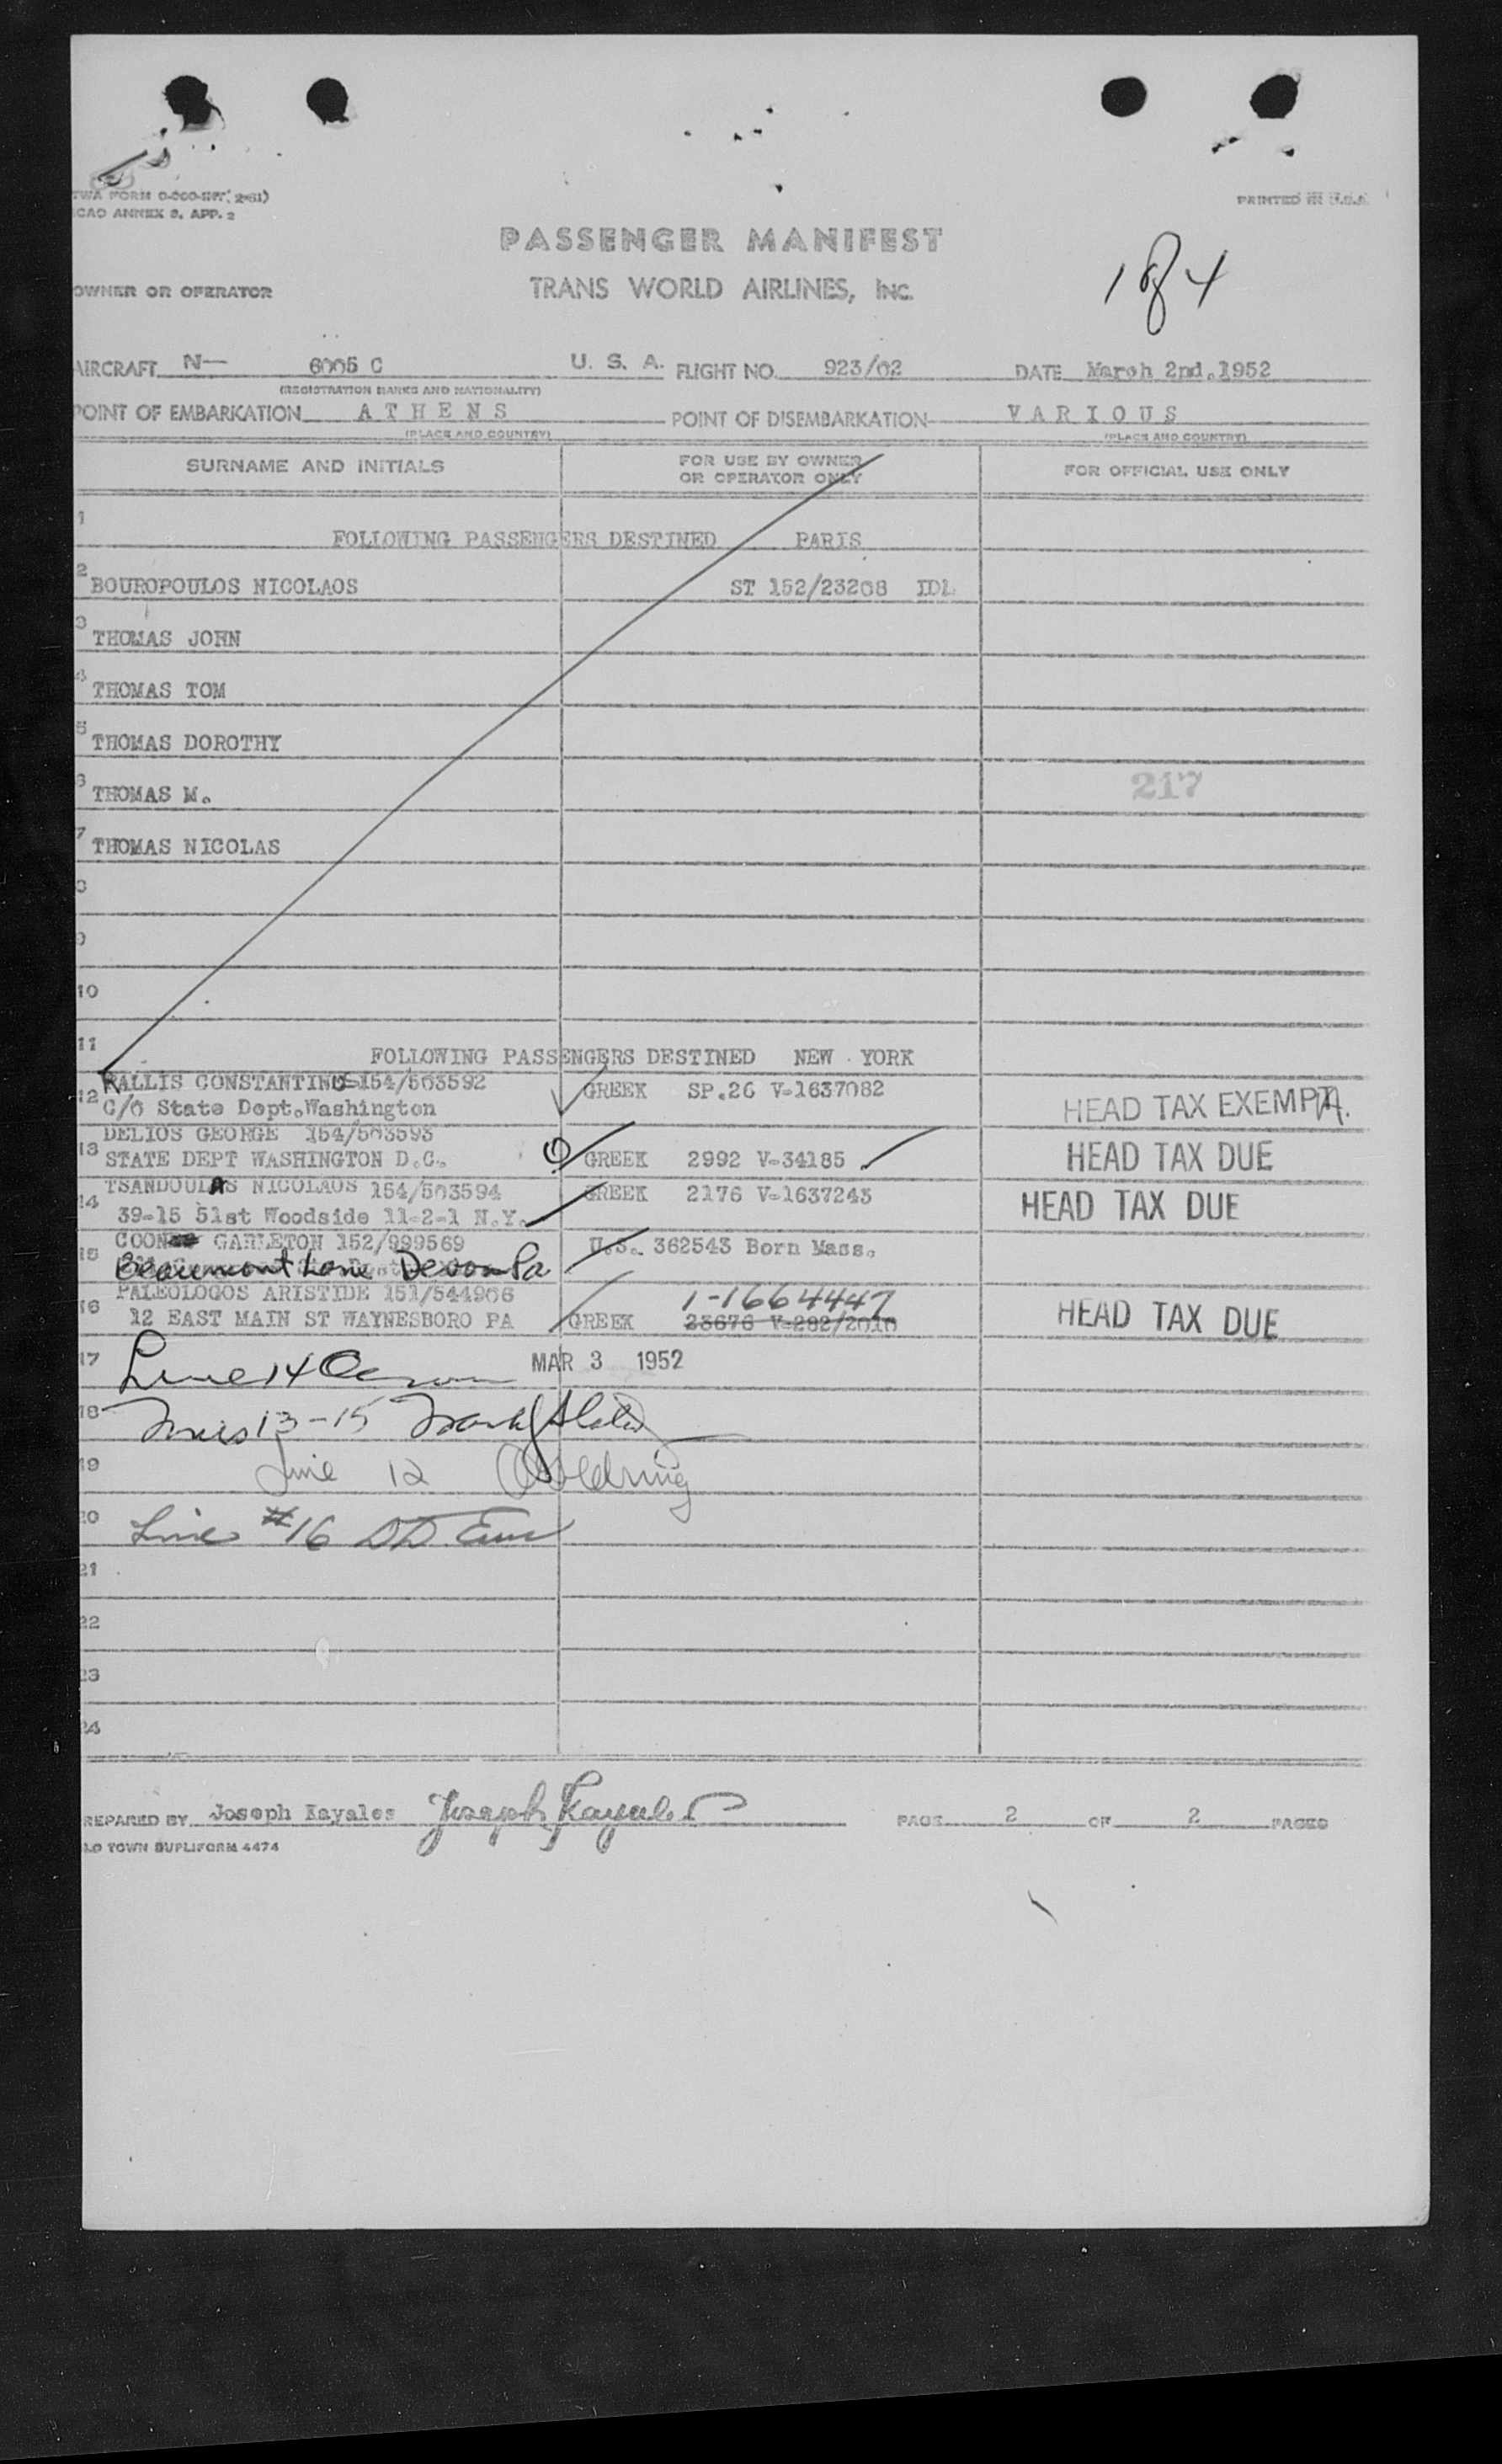 TWA FORM
ICAO ANNEX 9, APP. 2
PRINTED IN U.S.A.
PASSENGER MANIFEST
1 of 4
OWNER OR OPERATOR TRANS WORLD AIRLINES, INC.
AIRCRAFT N— 6005 C U. S. A. FLIGHT NO. 923/02 DATE March 2nd.1952
(REGISTRATION MARKS AND NATIONALITY)
POINT OF EMBARKATION A T H E N S POINT OF DISEMBARKATION V A R I O U S
(PLACE AND COUNTRY) (PLACE AND COUNTRY)
SURNAME AND INITIALS FOR USE BY OWNER OR OPERATOR ONLY FOR OFFICIAL USE ONLY
1 FOLLOWING PASSENGERS DESTINED PARIS
2 BOUROPOULOS NICOLAOS ST 152/23208 IDL
3 THOMAS JOHN
4 THOMAS TOM
5 THOMAS DOROTHY
6 THOMAS M. 217
7 THOMAS NICOLAS
8
9
10
11 FOLLOWING PASSENGERS DESTINED NEW YORK
RALLIS CONSTANTINOS 154/503592 GREEK SP.26 V-1637082
12 C/O State Dept.Washington HEAD TAX EXEMPT
DELIOS GEORGE 154/503593
13 STATE DEPT WASHINGTON D.C. GREEK 2992 V-34185 HEAD TAX DUE
TSANDOULAS NICOLAOS 154/503594 GREEK 2176 V-1637243 HEAD TAX DUE
14 39-15 51st Woodside 11-2-1 N.Y.
COON GARLETON 152/999569 U.S. 362543 Born Mass.
15 Beaumont Lane Devon Pa
PALEOLOGOS ARISTIDE 151/544906 1-1664447
16 12 EAST MAIN ST WAYNESBORO PA GREEK 23676 HEAD TAX DUE
17 Line 14 MAR 3 1952
18 Lines 13-15
19 Line 12
20 Line #16
21
22
23
24
PREPARED BY Joseph Kayales Joseph Kayales PAGE 2 OF 2 PAGES
OLD TOWN DUPLIFORM 4474